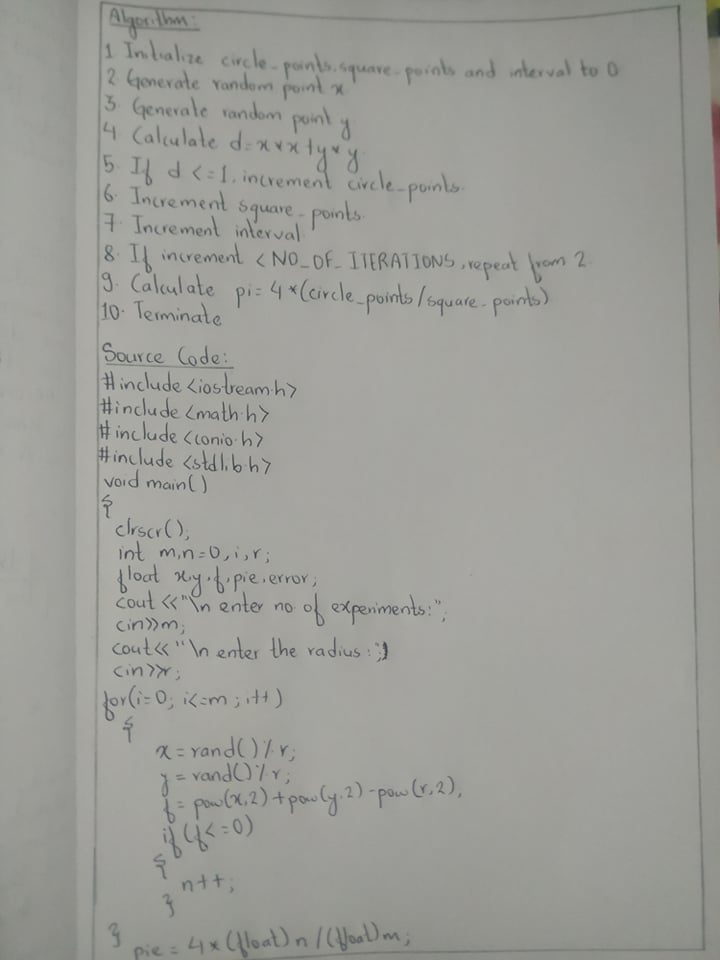 Algorithm:
1 Initialize circle_points, square_points and interval to 0
2 Generate random point x
3. Generate random point y
4. Calculate d=x*x+y*y
5. If d <=1, increment circle_points.
6. Increment square_points.
7. Increment interval
8. If increment < NO_OF_ITERATIONS, repeat from 2.
9. Calculate pi=4*(circle_points/square_points)
10. Terminate
Source Code:
#include <iostream.h>
#include <math.h>
#include <conio.h>
#include <stdlib.h>
void main()
{
clrscr();
int m,n=0,i,r;
float x,y,f,pie,error;
cout<<"\n enter no of experiments:";
cin>>m;
cout<<"\n enter the radius:";
cin>>r;
for(i=0; i<=m ;i++)
{
x = rand()%r;
y = rand()%r;
f = pow(x,2)+pow(y,2)-pow(r,2);
if(f<=0)
{
n++;
}
}
pie = 4*(float)n/(float)m;